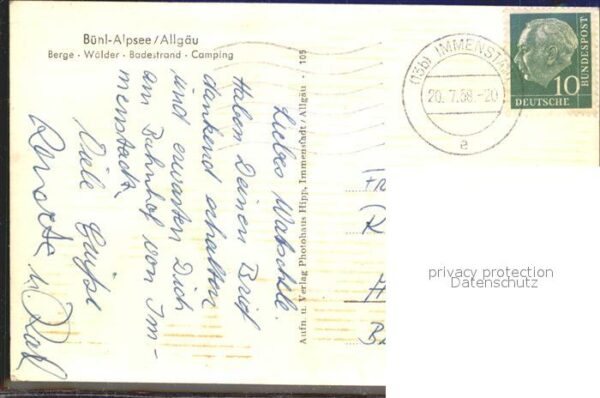 Bühl-Alpsee/Allgäu
Berge · Wälder · Badestrand · Camping
Liebes
Haben Deinen Brief
dankend erhalten
und erwarten Dich
am Bahnhof von Im-
menstadt.
Viele Grüße
Aufn. u. Verlag Photohaus Hipp, Immenstadt/Allgäu · 105
(13b) IMMENSTADT
20.7.58.-20
a
10
DEUTSCHE
BUNDESPOST
privacy protection
Datenschutz